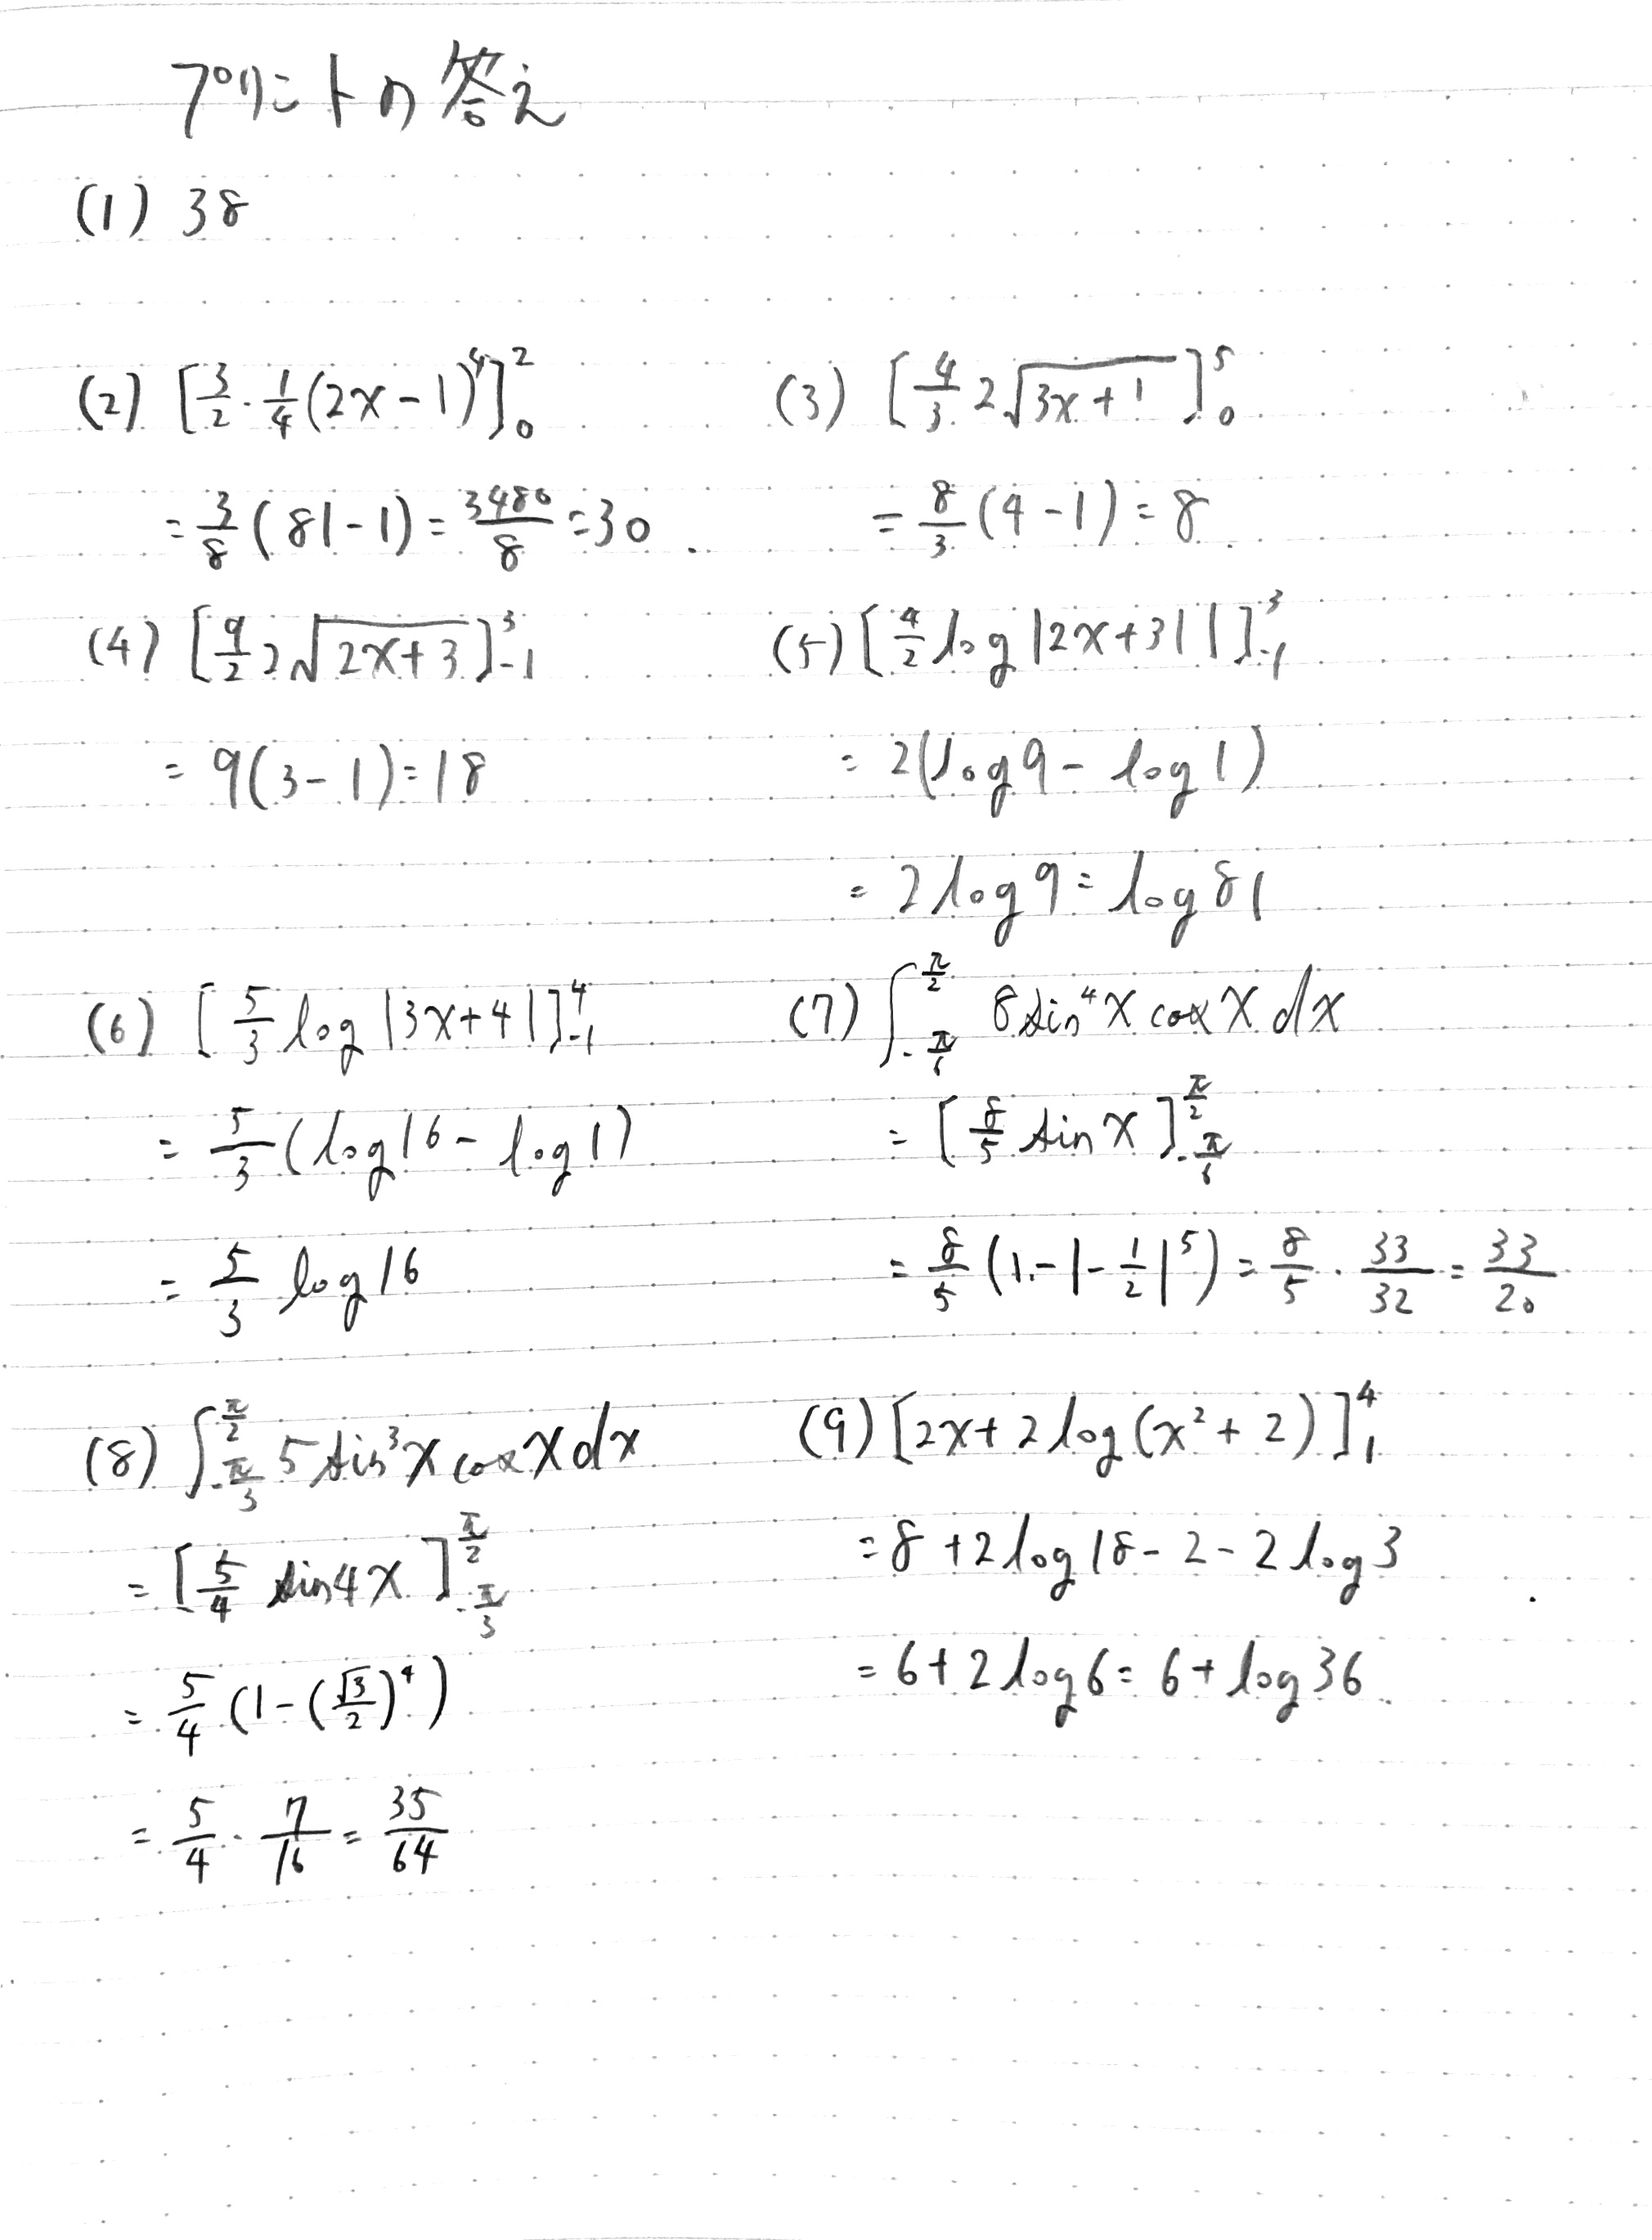 プリントの答え
(1) 38
(2) [3/2 · 1/4 (2x-1)^4]_0^2
= 3/8 (81-1) = 3480/8 = 30
(3) [4/3 2√(3x+1)]_0^5
= 8/3 (4-1) = 8
(4) [9/2 2√(2x+3)]_-1^3
= 9(3-1) = 18
(5) [4/2 log |2x+3||]_-1^3
= 2(log 9 - log 1)
= 2 log 9 = log 81
(6) [5/3 log |3x+4|]_-1^4
= 5/3 (log 16 - log 1)
= 5/3 log 16
(7) ∫_-π/6^π/2 8 sin^4 x cos x dx
= [8/5 sin x]_-π/6^π/2
= 8/5 (1-|-1/2|^5) = 8/5 · 33/32 = 33/20
(8) ∫_-π/3^π/2 5 sin^3 x cos x dx
= [5/4 sin 4x]_-π/3^π/2
= 5/4 (1-(√3/2)^4)
= 5/4 · 7/16 = 35/64
(9) [2x + 2 log (x^2+2)]_1^4
= 8 + 2 log 18 - 2 - 2 log 3
= 6 + 2 log 6 = 6 + log 36